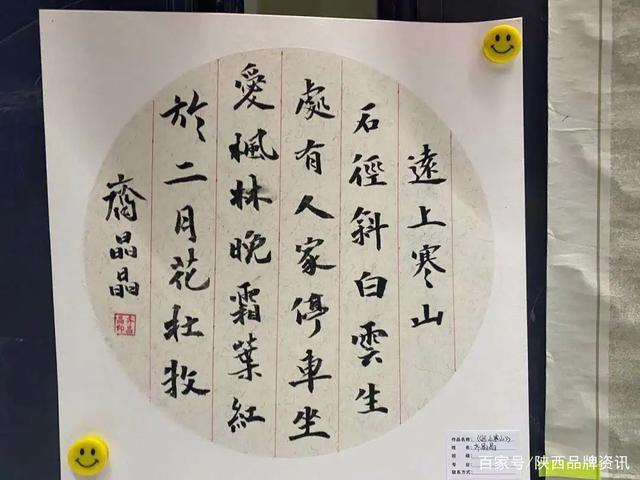 遠上寒山
石徑斜白雲生
處有人家停車坐
愛楓林晚霜葉紅
於二月花杜牧
齊晶晶
作品名称：《远上寒山》
姓 名：齐晶晶
班 级：
专 业：
联系方式：
百家号/陕西品牌资讯